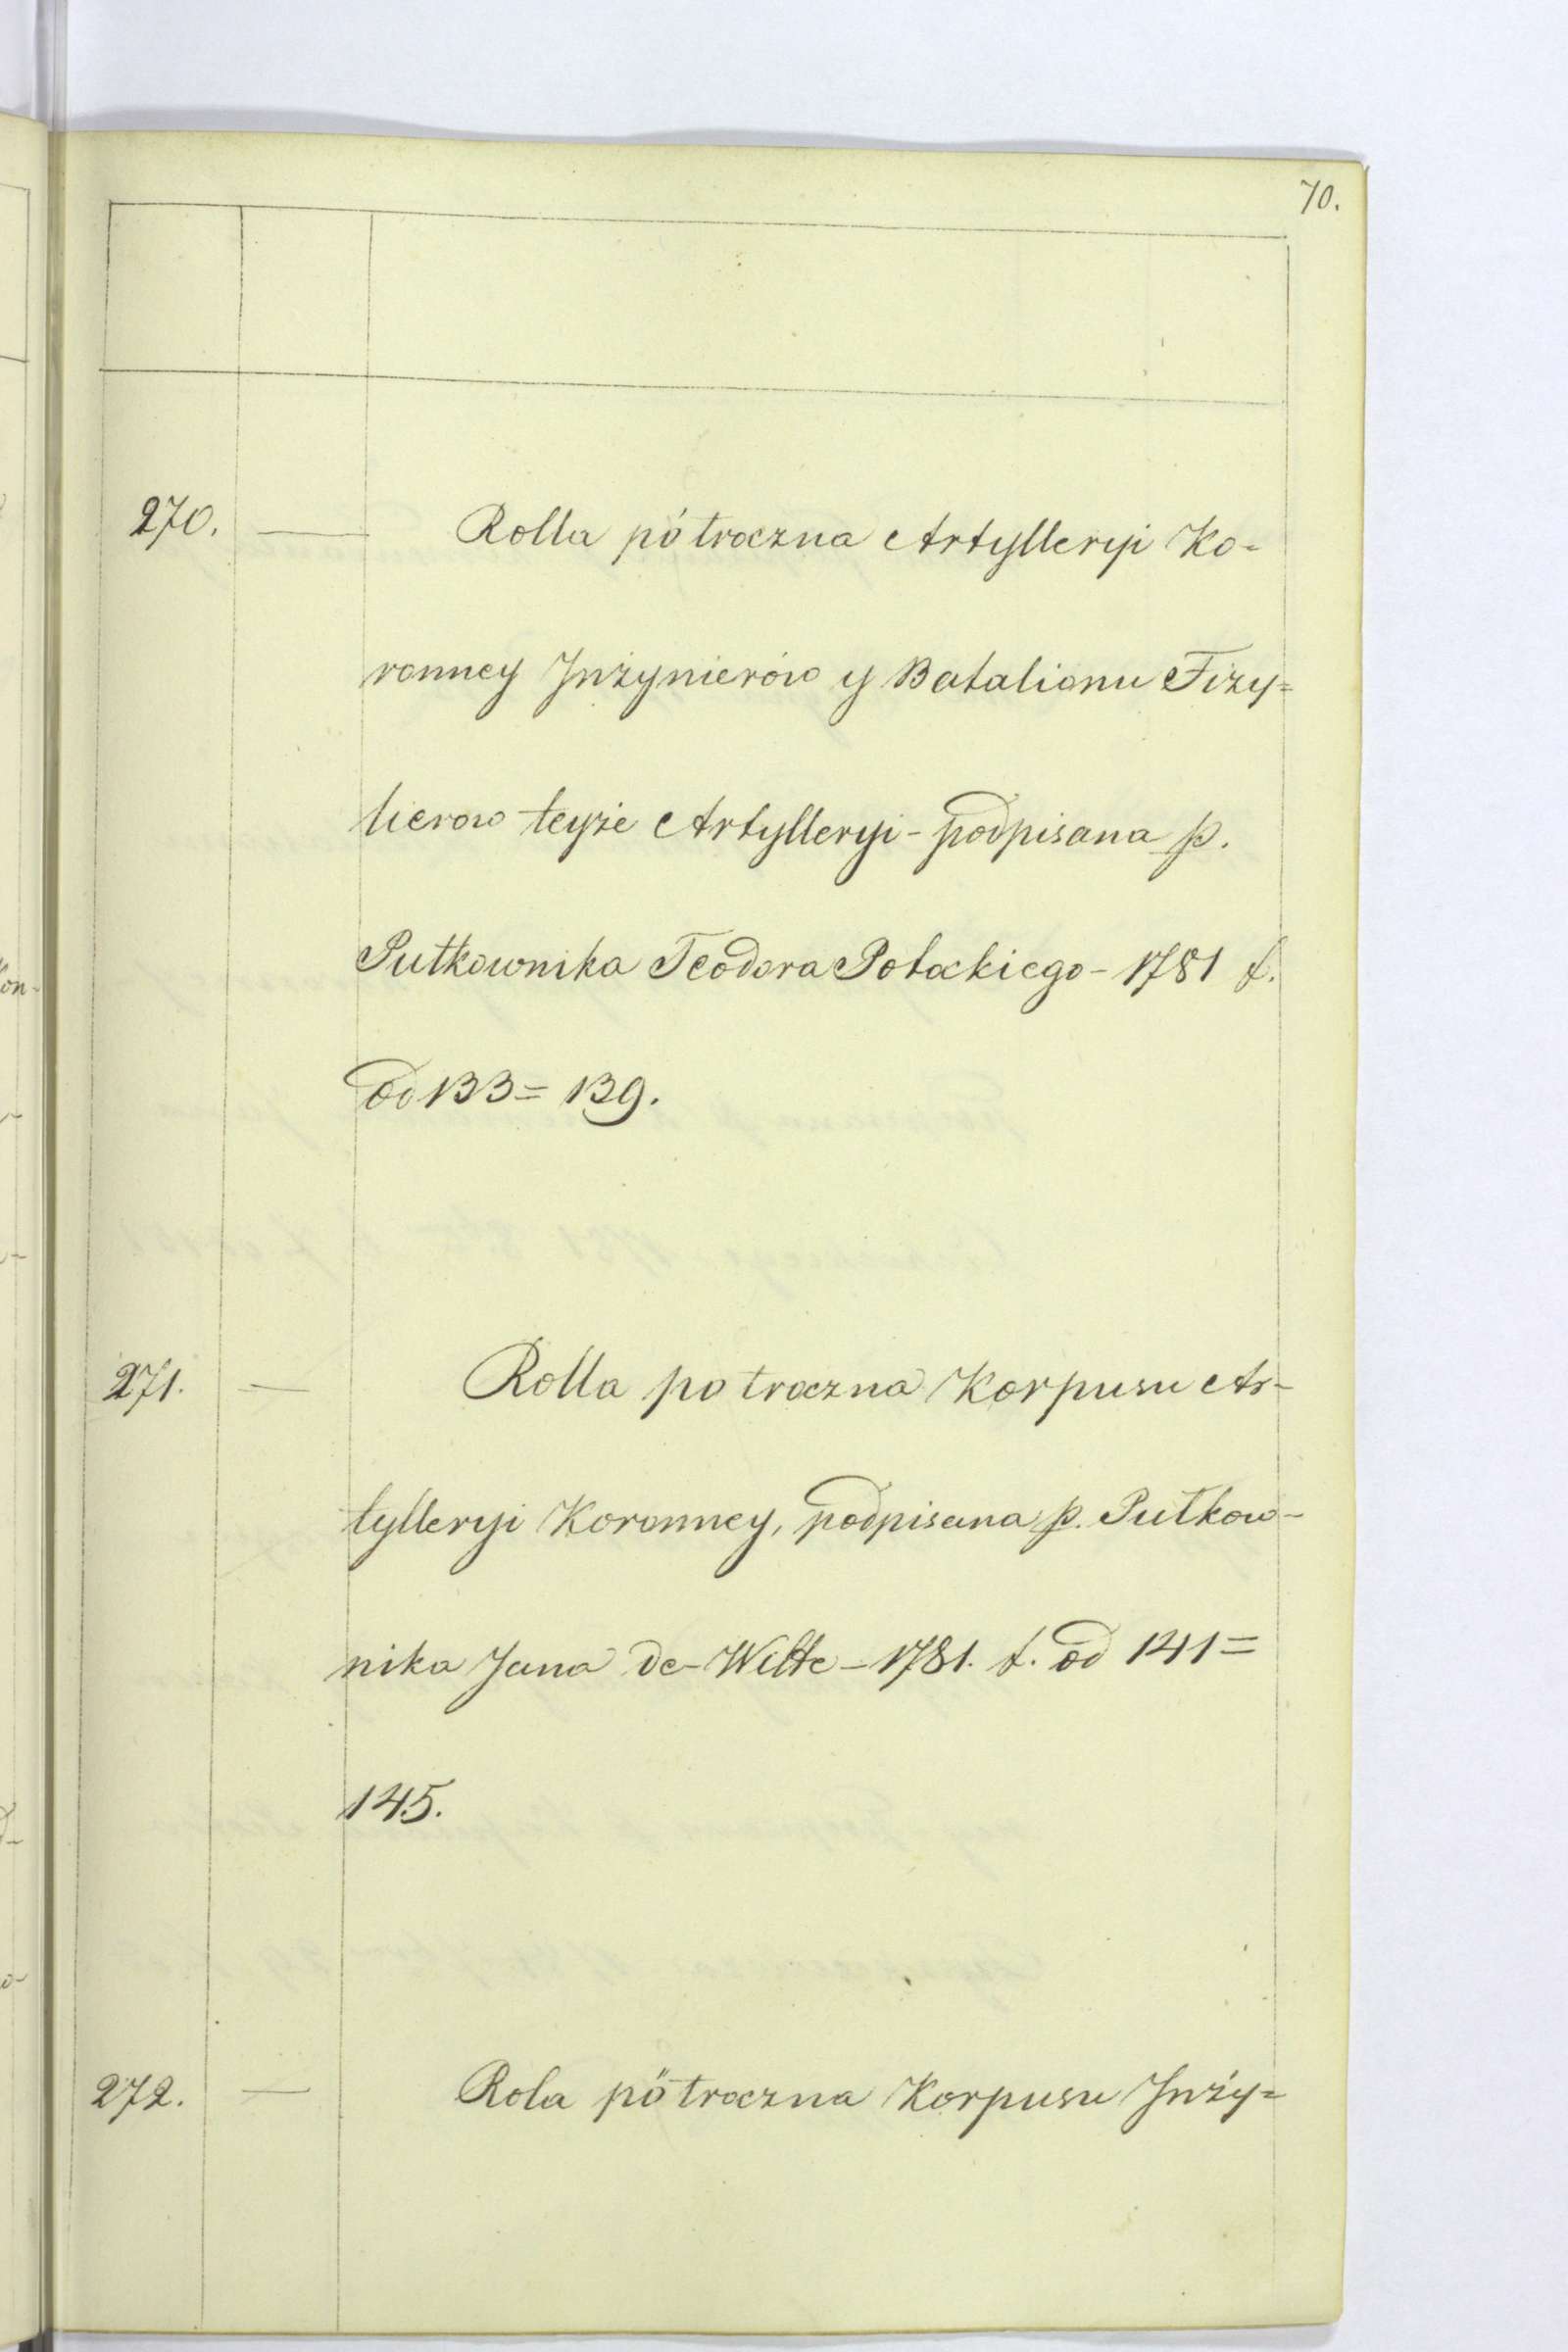 70.
270. — Rolla półroczna Artylleryi Ko=
ronney Jnżynierów y Batalionu Fizy=
lierow teyże Artylleryi - podpisana p.
Pułkownika Teodora Potockiego - 1781 f.
od 133 = 139.
271. — Rolla połroczna Korpusu Ar-
tylleryi Koronney, podpisana p. Pułkow-
nika Jana de-Witte - 1781. f. od 141 =
145.
272. — Rola pöłroczna Korpusu Jnży=